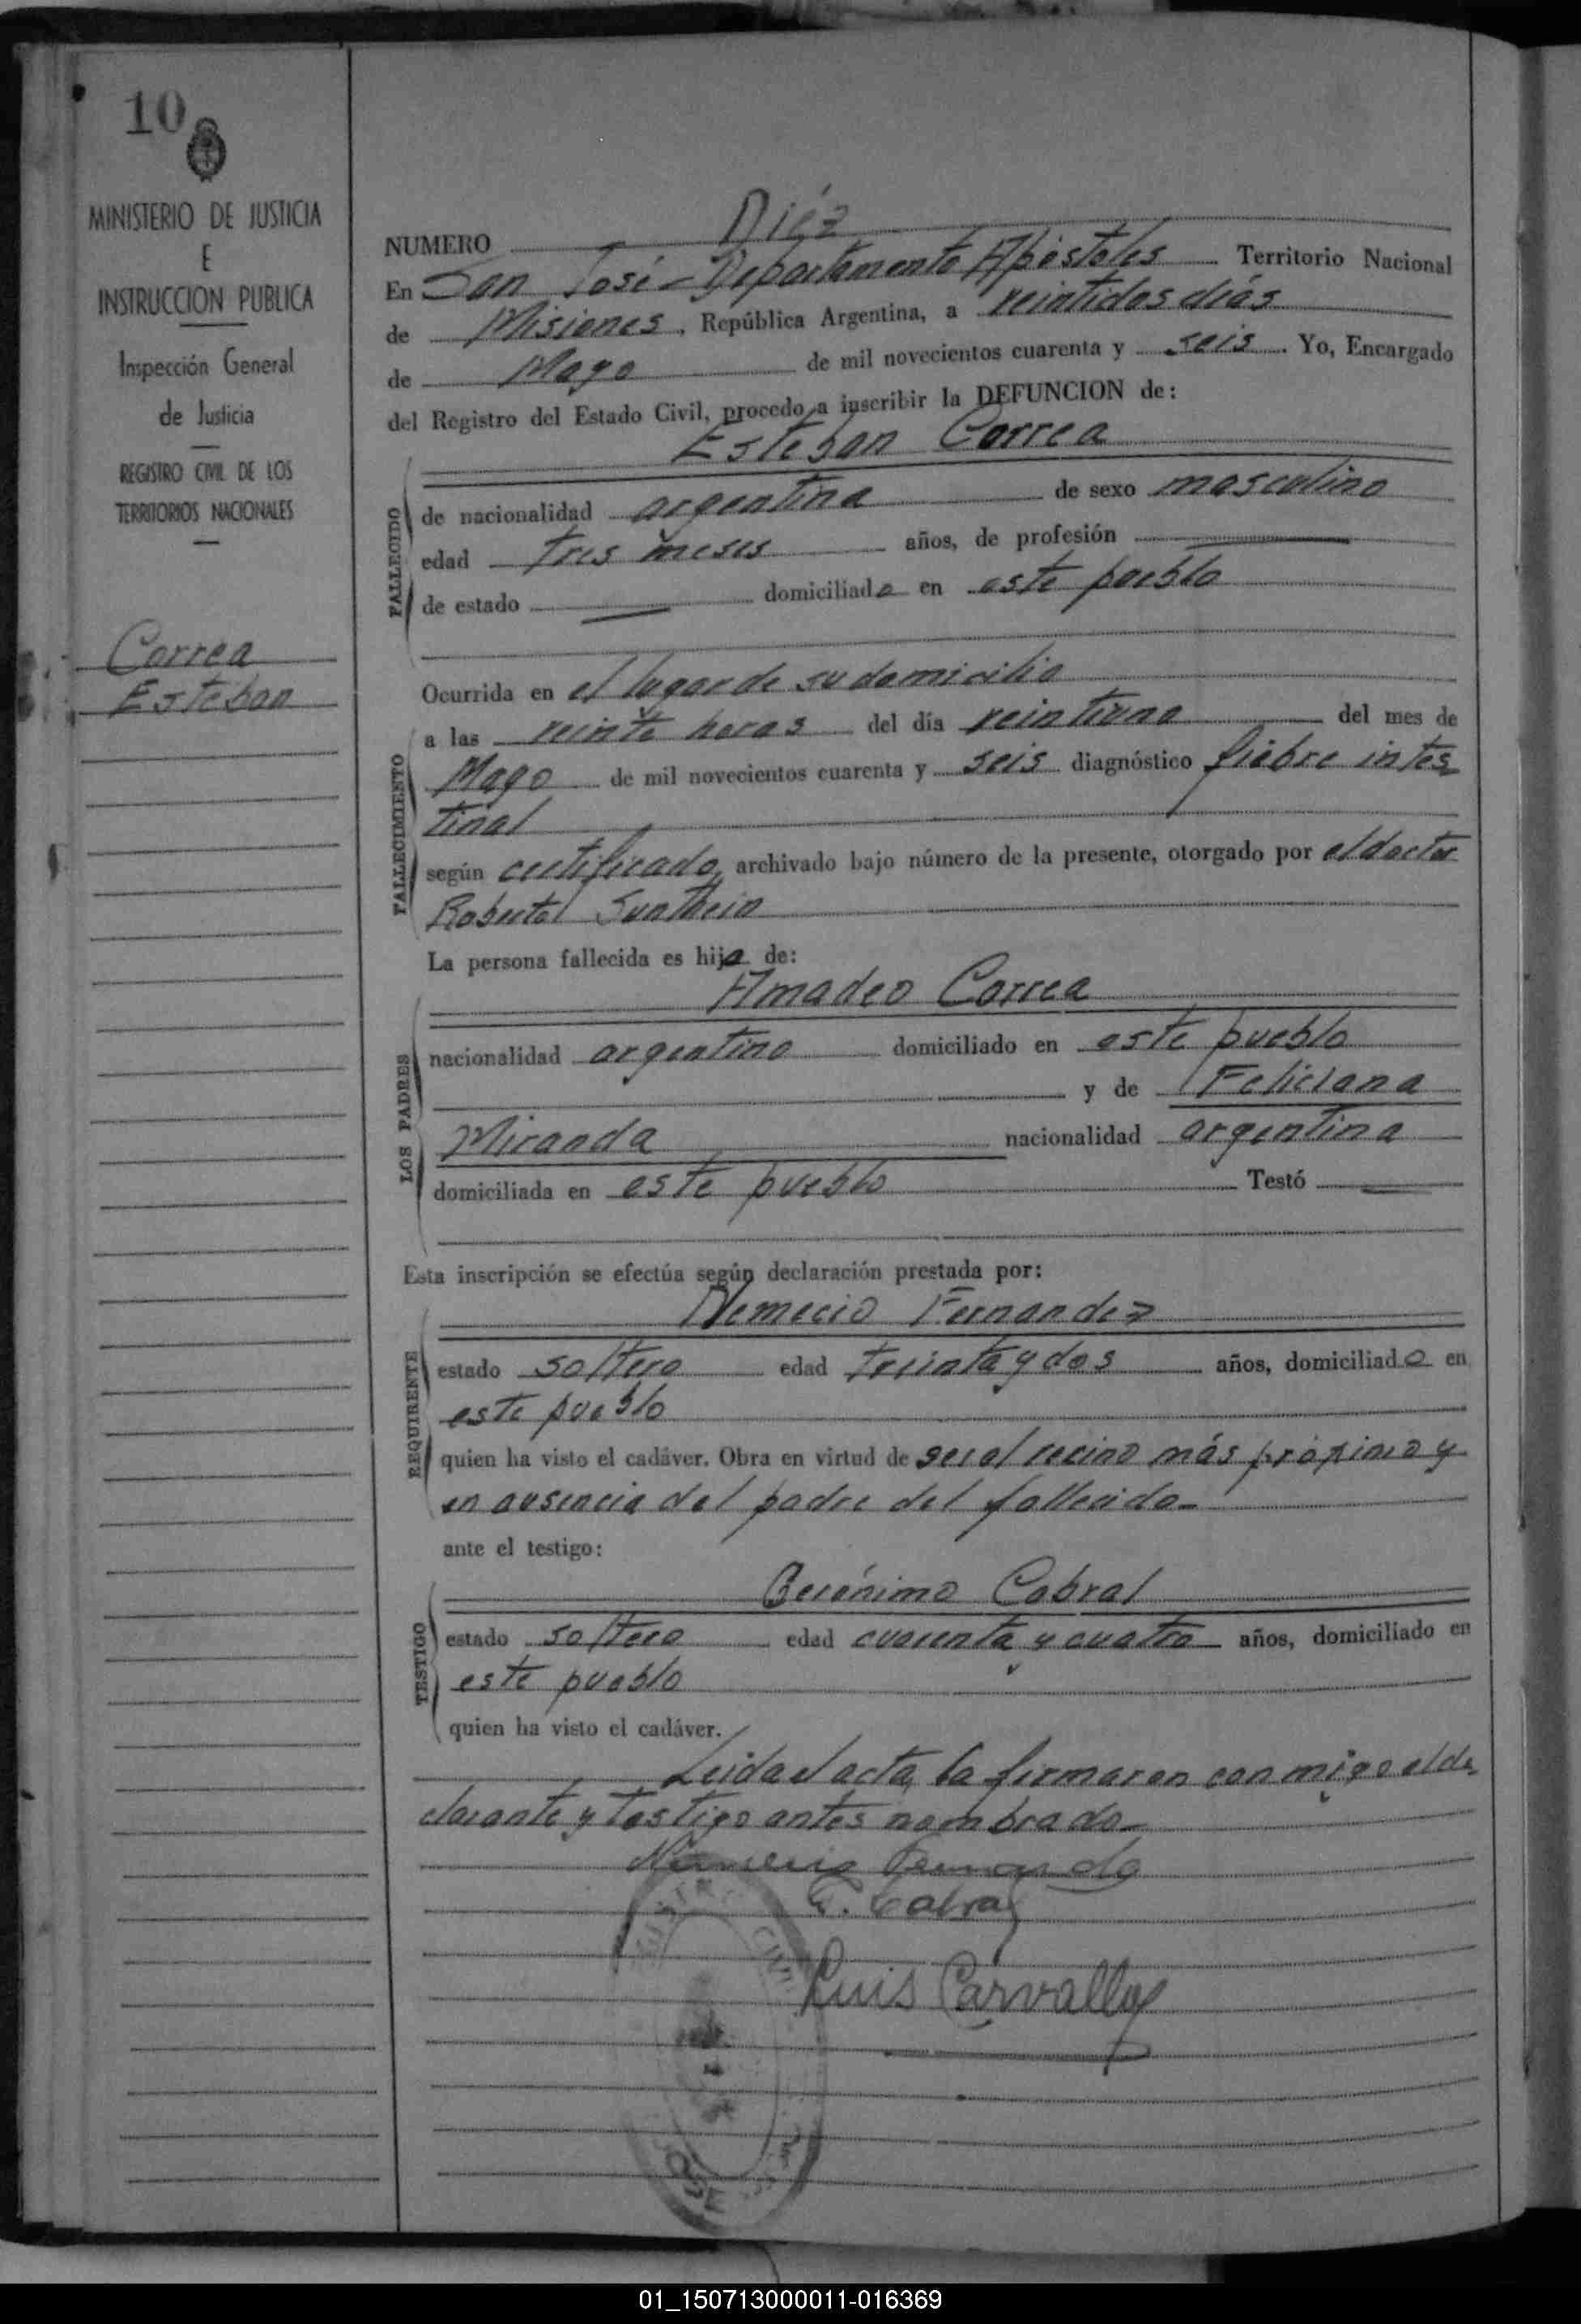 10
MINISTERIO DE JUSTICIA
E
INSTRUCCION PUBLICA
Inspección General
de Justicia
REGISTRO CIVIL DE LOS
TERRITORIOS NACIONALES
Correa
Esteban
NUMERO Diéz
En San José - Departamento Apóstoles Territorio Nacional
de Misiones, República Argentina, a veintidos días
de Mayo de mil novecientos cuarenta y seis. Yo, Encargado
del Registro del Estado Civil, procedo a inscribir la DEFUNCION de:
Esteban Correa
FALLECIDO
de nacionalidad argentina de sexo masculino
edad tres meses años, de profesión
de estado domiciliado en este pueblo
FALLECIMIENTO
Ocurrida en el lugar de su domicilio
a las veinte horas del día veintiuno del mes de
Mayo de mil novecientos cuarenta y seis diagnóstico fiebre intes
tinal
según certificado, archivado bajo número de la presente, otorgado por el doctor
Roberto
La persona fallecida es hijo de:
LOS PADRES
Amadeo Correa
nacionalidad argentino domiciliado en este pueblo
y de Feliciana
Miranda nacionalidad argentina
domiciliada en este pueblo Testó
Esta inscripción se efectúa según declaración prestada por:
REQUIRENTE
Nemecio Fernandez
estado soltero edad treinta y dos años, domiciliado en
este pueblo
quien ha visto el cadáver. Obra en virtud de ser el vecino más próximo y
en ausencia del padre del fallecido-
ante el testigo:
TESTIGO
Gerónimo Cabral
estado soltero edad cuarenta y cuatro años, domiciliado en
este pueblo
quien ha visto el cadáver.
Leida el acta, la firmaron con migo el de
clarante y testigo antes nombrado-
Nemecio Fernandez
G. Cabral
Luis Carvallo
01_150713000011-016369